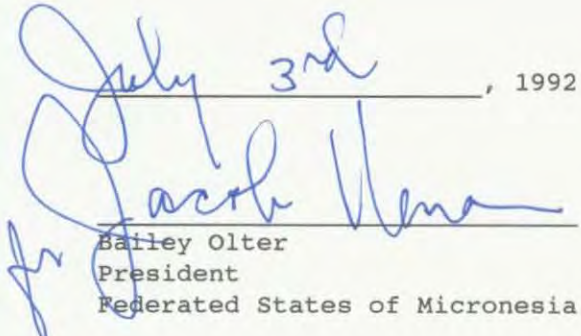 July 3rd, 1992
for Jacob Nena
Bailey Olter
President
Federated States of Micronesia